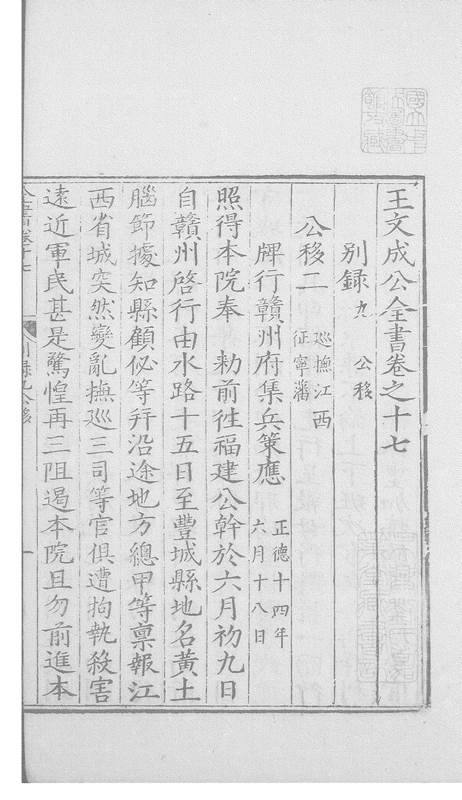 王文成公全書卷之十七
別錄九 公移
公移二 巡撫江西
征寧藩
牌行贛州府集兵策應 正德十四年
六月十八日
照得本院奉 勅前徃福建公幹於六月初九日
自贛州啓行由水路十五日至豐城縣地名黃土
腦節據知縣顧佖等幷沿途地方總甲等稟報江
西省城突然變亂撫巡三司等官俱遭拘執殺害
遠近軍民甚是驚惶再三阻遏本院且勿前進本